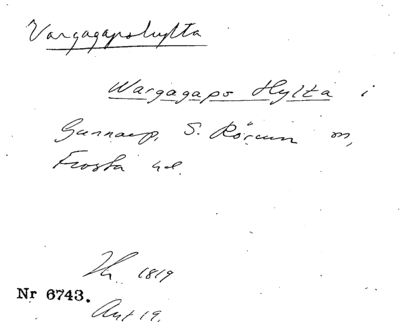 Vargagapshylta
Wargagaps Hylta i
Gunnarp, S. Rörum sn,
Frosta hd.
Th. 1819
Nr 6743.
Ant 19.